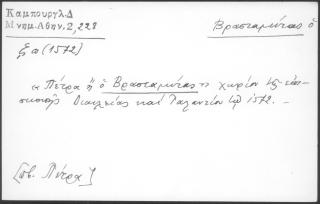 Καμπουργλ.Δ
Μνημ.Αθην.2,228
Βρασταμύτας ὁ
ξα (1572)
"Πέτρα ἢ ὁ Βρασταμύτας" χωρίον τῆς ἐπι-
σκοπῆς Διαυλείας καὶ Ταλαντίου τῷ 1572. —
[πβ. Πέτρα]